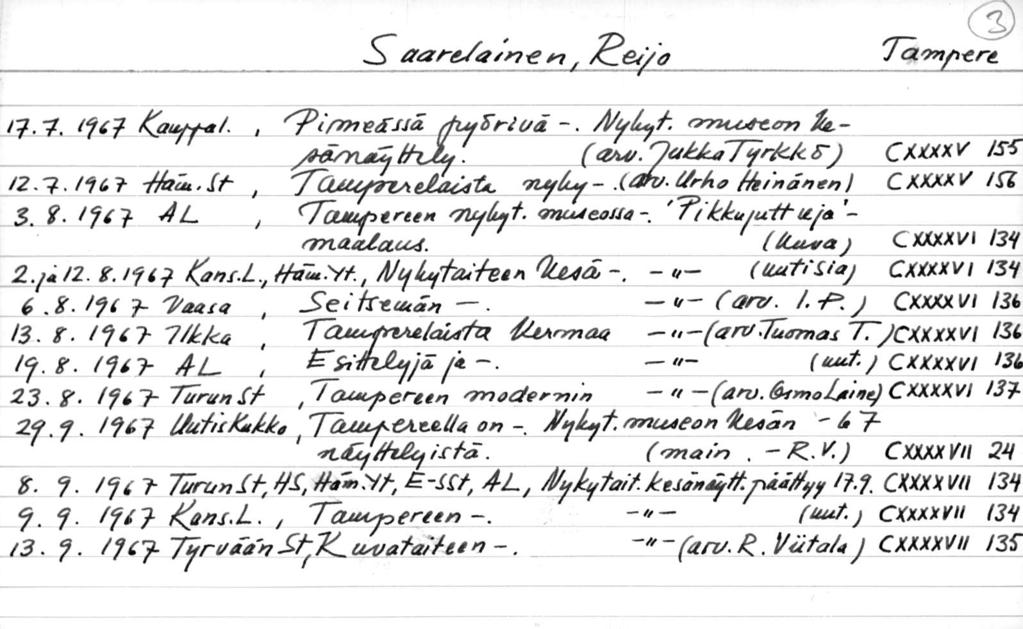 3
Saarelainen, Reijo Tampere
17.7. 1967 Kauppal. , Pimeässä pyörivä -. Nykyt. museon ke-
sänäyttely. (arv. Jukka Tyrkkö) CXXXXV 155
12.7.1967 Häm.St , Tamperelaista nyky-.(arv. Urho Heinänen) CXXXXV 156
3.8.1967 AL , Tampereen nykyt. museossa-. 'Pikkujuttuja'-
maalaus. (kuva) CXXXXVI 134
2.ja 12.8.1967 Kans.L., Häm.Yt., Nykytaiteen kesä -. -"- (uutisia) CXXXXVI 134
6.8.1967 Vaasa , Seitsemän -. -"- (arv. I.P.) CXXXXVI 136
13.8.1967 Ilkka , Tamperelaista kermaa -"- (arv.Tuomas T.) CXXXXVI 136
19.8.1967 AL , Esittelyjä ja -. -"- (uut.) CXXXXVI 136
23.8.1967 TurunSt , Tampereen modernin -"- (arv. OsmoLaine) CXXXXVI 137
29.9.1967 UutisKukko, Tampereella on -. Nykyt. museon kesän -67
näyttelyistä. (main. - R.V.) CXXXXVII 24
8.9.1967 TurunSt, HS, Häm.Yt, E-SSt, AL, Nykytait. kesänäytt. päättyy 17.9. CXXXXVII 134
9.9.1967 Kans.L. , Tampereen -. -"- (uut.) CXXXXVII 134
13.9.1967 TyrväänSt, Kuvataiteen -. -"- (arv. R. Viitala) CXXXXVII 135